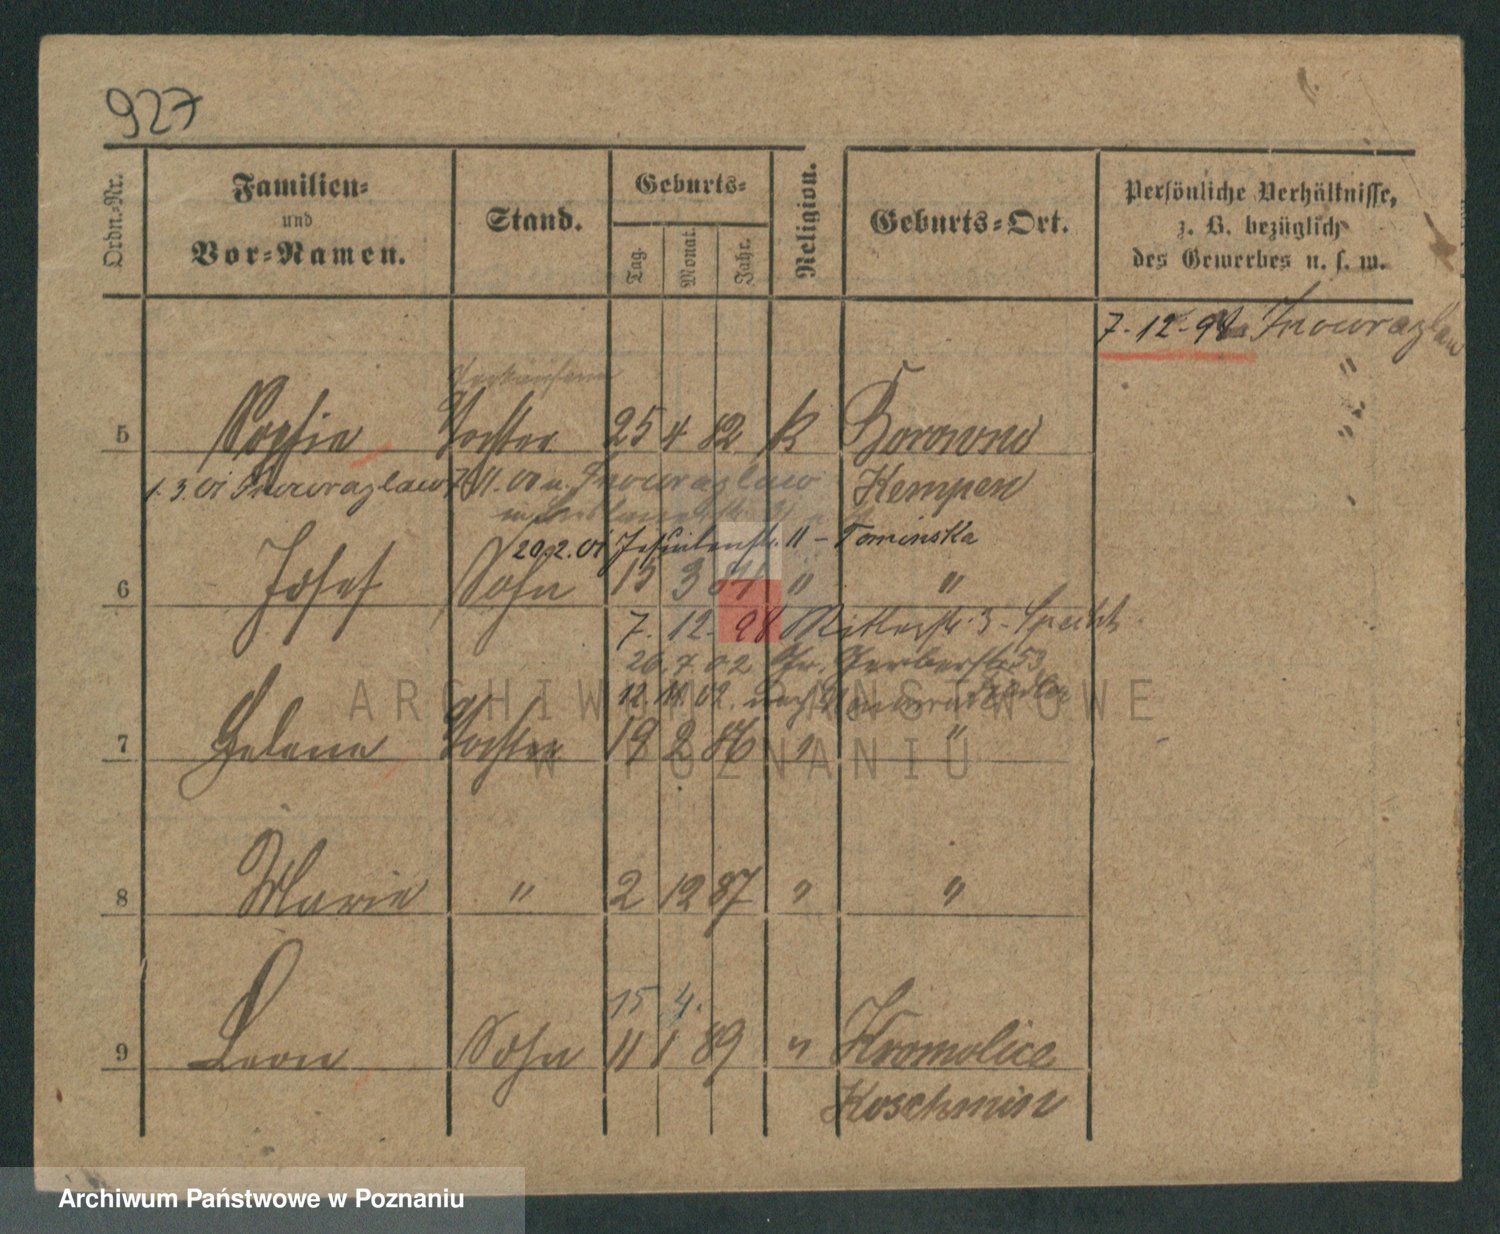 927
Ordn.-Nr.
Familien-
und
Vor-Namen.
Stand.
Geburts-
Tag.
Monat.
Jahr.
Religion.
Geburts-Ort.
Persönliche Verhältnisse,
z. B. bezüglich
des Gewerbes u. s. w.
7-12-98 Inowrazlaw
"
"
"
5 Sophie Tochter 25 4 82 K Borowno
1.3.01 Inowrazlaw 7.11.01 u. Inowrazlaw Kempen
20.2.01 Jesuitenstr. 11 - Tominska
6 Josef Sohn 15 3 84 " "
7. 12. 98 Ritterstr. 3 -
26.7.02 Gr. Gerberstr. 53
12.11.02. nach
7 Helene Tochter 19 2 86 " "
8 Marie " 2 12 87 " "
15 4.
9 Leon Sohn 11 1 89 " Kromolice
Koschmin
ARCHIWUM PAŃSTWOWE
W POZNANIU
Archiwum Państwowe w Poznaniu